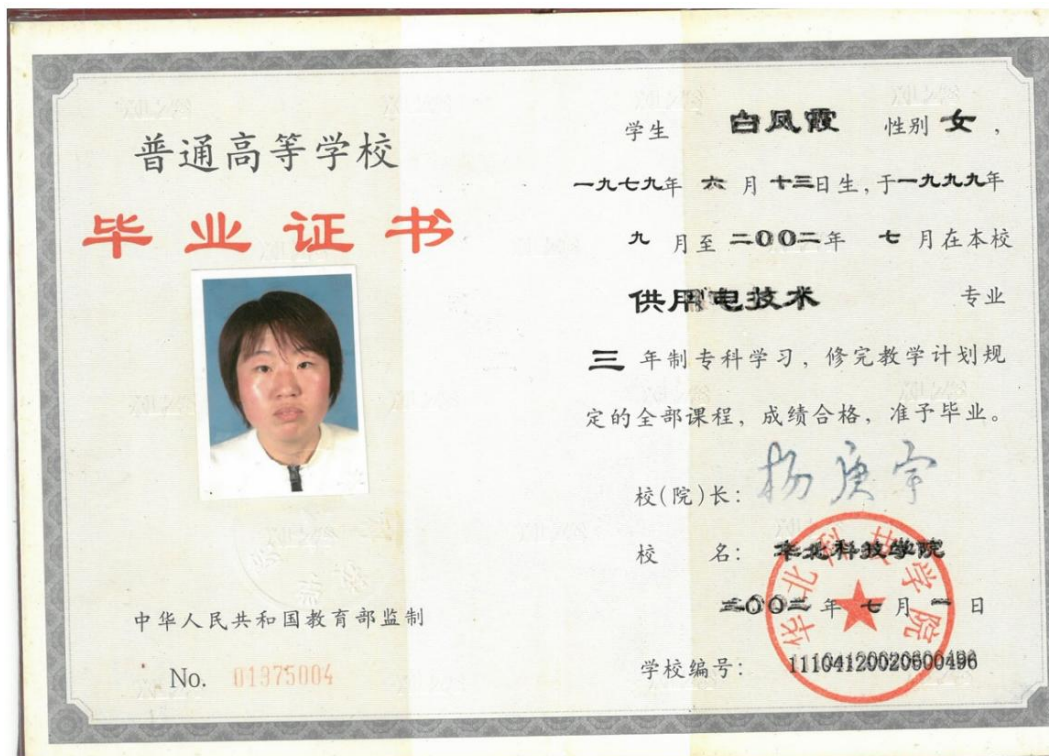 普通高等学校
毕业证书
中华人民共和国教育部监制
No. 01975004
学生 白凤霞 性别 女，
一九七九年 六 月 十三日生，于一九九九年
九 月至 二〇〇二年 七 月在本校
供用电技术 专业
三 年制专科学习，修完教学计划规
定的全部课程，成绩合格，准予毕业。
校(院)长：杨庚宇
校 名：华北科技学院
二〇〇二年 七 月 一 日
学校编号：111041200206000496
华北科技学院